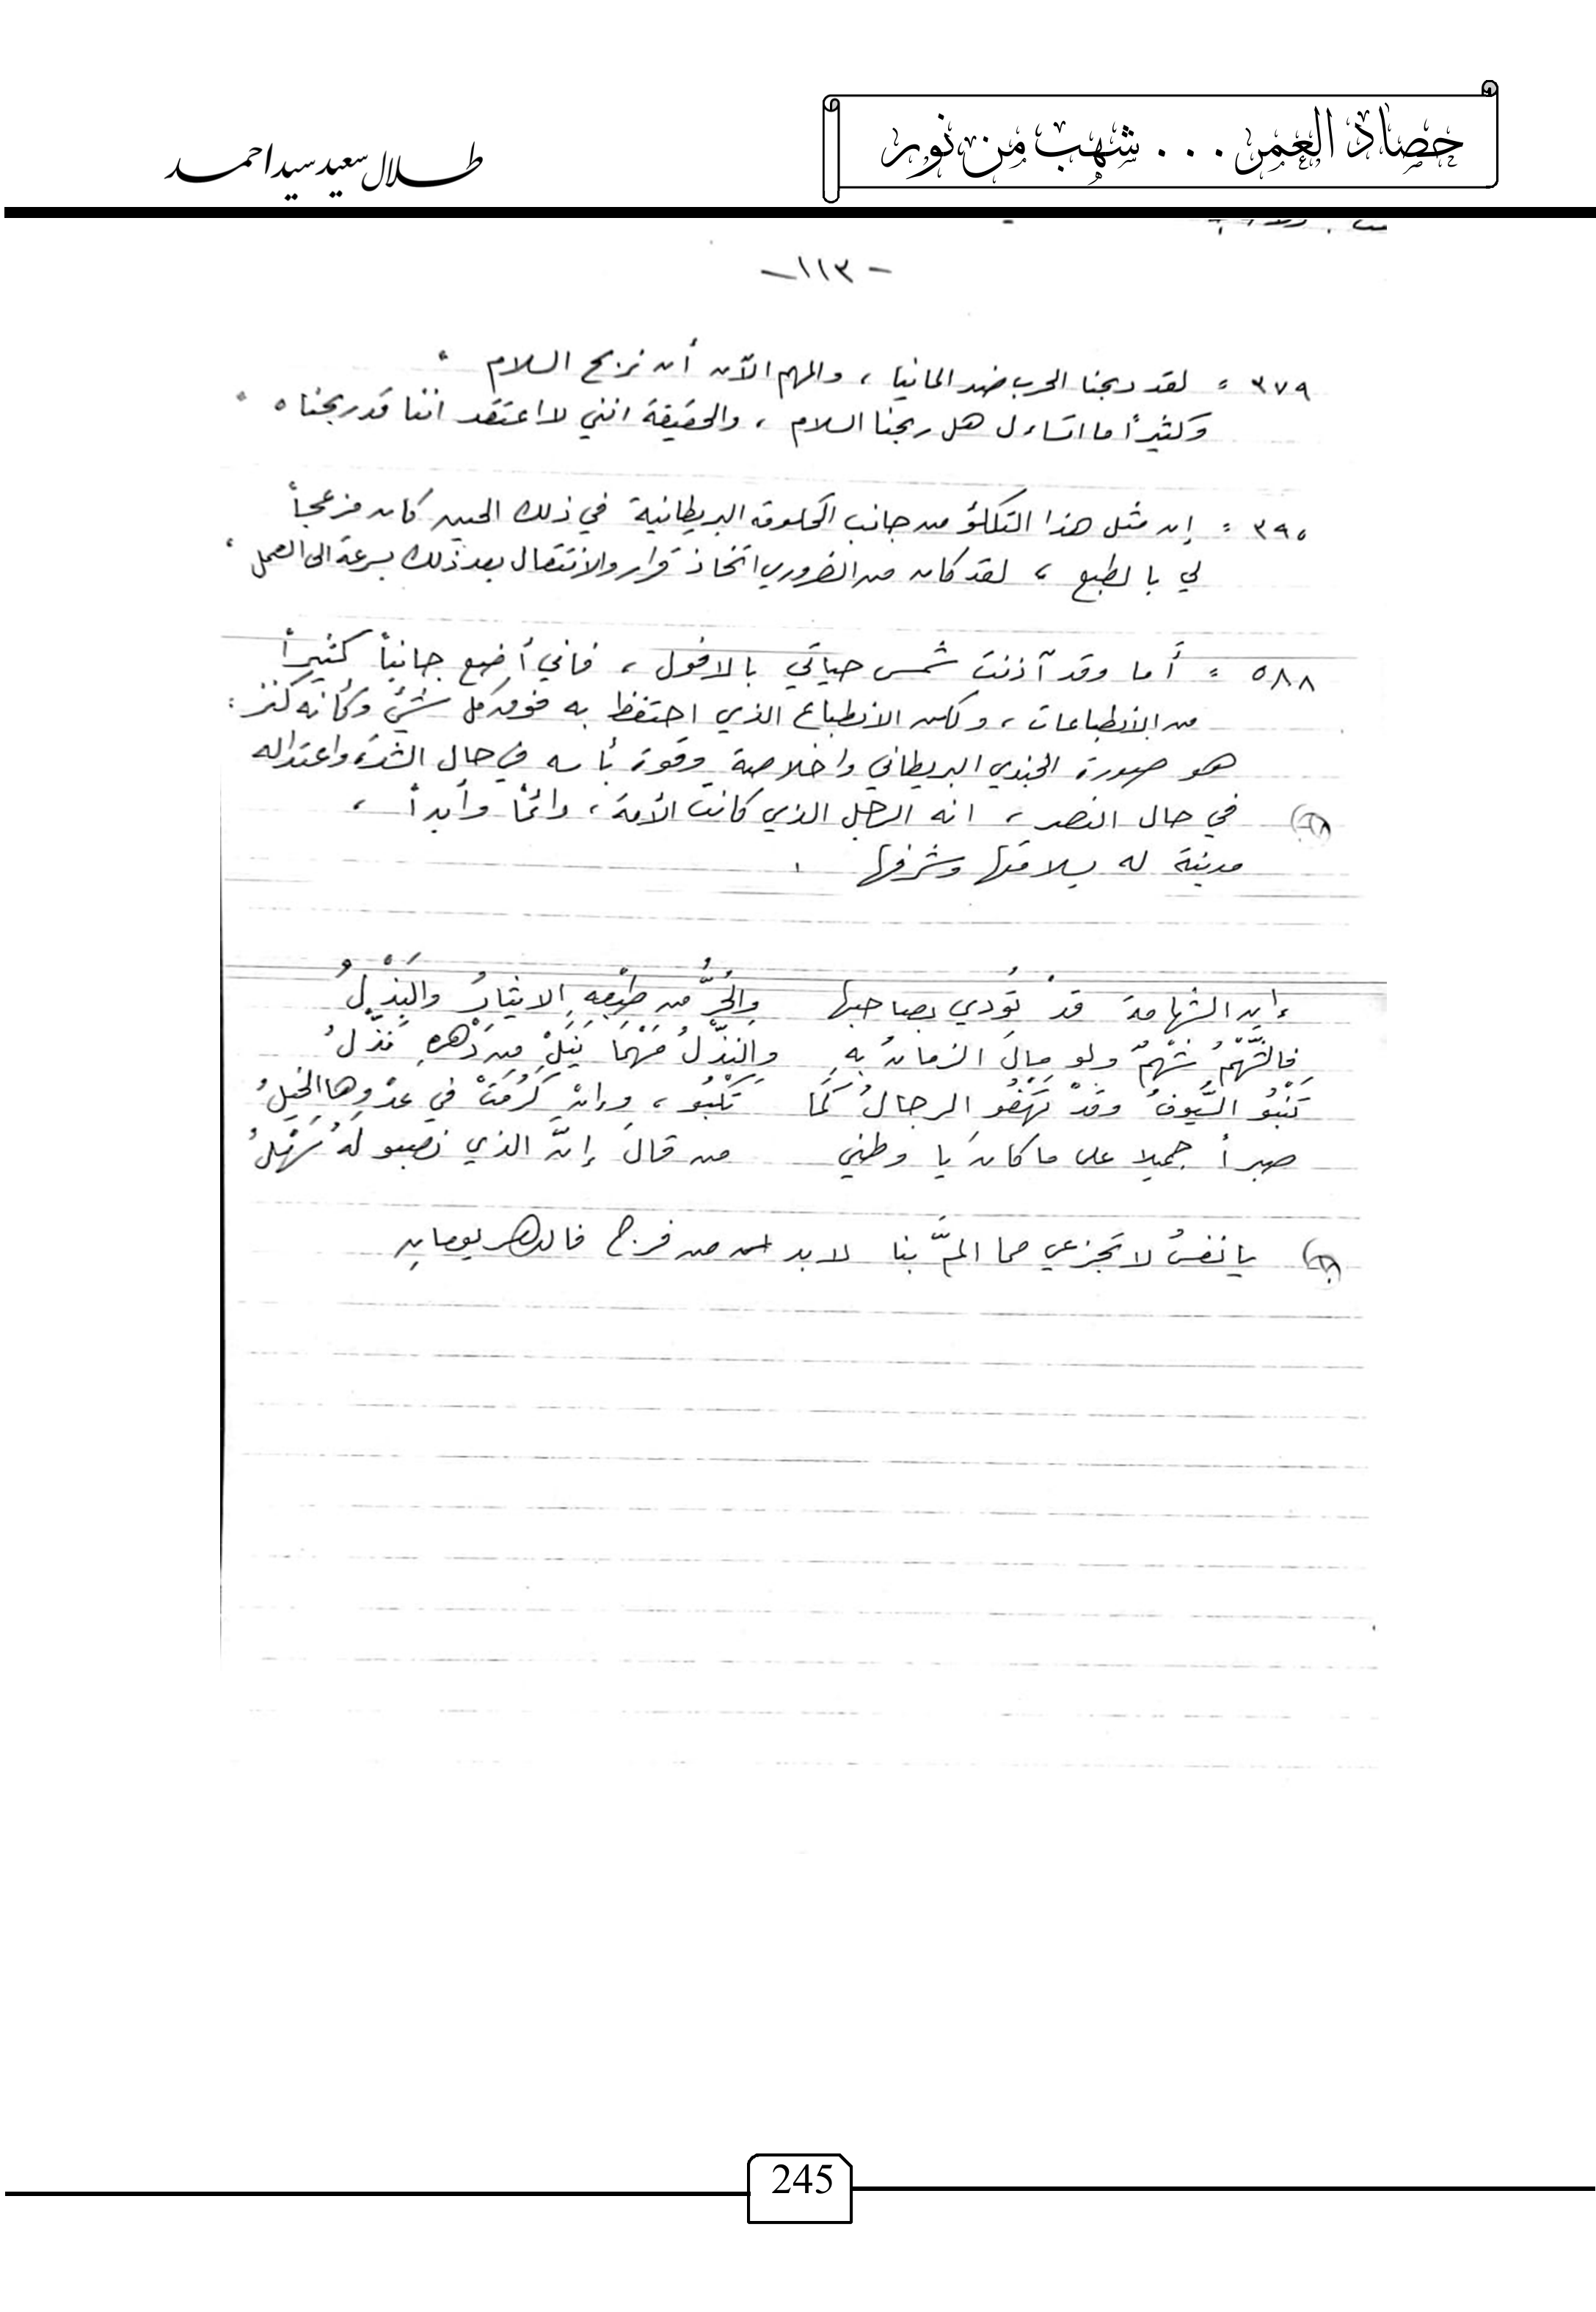 حصاد العمر ... شهب من نور
طلال سعيد سيد احمد
- ١١٣ -
٣٧٩ = لقد ربحنا الحرب ضد المانيا ، والمهم الآن أن نربح السلام .
وكثيراً ما اتساءل هل ربحنا السلام ، والحقيقة انني لا اعتقد اننا قد ربحناه .
٣٩٥ = إن مثل هذا التلكؤ من جانب الحكومة البريطانية في ذلك الحين كان مزعجاً
لي بالطبع ، لقد كان من الضروري اتخاذ قرار والانتقال بعد ذلك بسرعة الى العمل .
٥٨٨ = أما وقد آذنت شمس حياتي بالافول ، فاني أضيع جانباً كثيراً
من الانطباعات ، ولكن الانطباع الذي احتفظ به فوق كل شئ وكأنه كنز :
هو صورة الجندي البريطاني واخلاصة وقوة بأسه في حال الشدة واعتداله
في حال النصر ، انه الرجل الذي كانت الأمة ، دائماً وأبداً ،
مدينة له بسلامتها وشرفها .
إن الشهامة قدْ تُودي بصاحبها والحُرُّ من طبْعِهِ الايثارُ والبَذْلُ
فالشَّهْمُ شهْمٌ ولو مالَ الزمانُ بهِ والنِذْلُ مَهْمَا يَنَلْ مِن دَهْرهِ نَذْلُ
تَنْبُو السُّيوفُ وقَدْ تَهْفُو الرجالُ كَمَا تَكْبُو ، وإنْ كَرُمَتْ في عدْوِها الخيلُ
صبراً جميلا على ما كانَ يا وطني من قالَ إنَّ الذي نصبو لَهُ سَهْلُ
يا نفسُ لا تَجزعي مما المَّ بنا لابد من فرج فالدهر يومانِ
245